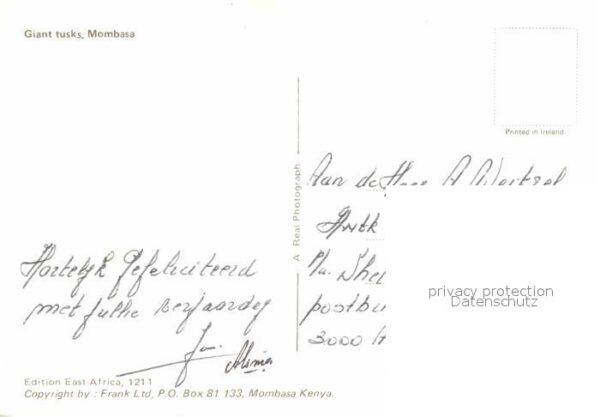 Giant tusks, Mombasa
Printed in Ireland
A Real Photograph
Hartelijk Gefeliciteerd
met jullie verjaardag
Aan de Heer A
p/a. Shel
postbu
3000
privacy protection
Datenschutz
Edition East Africa, 1211
Copyright by : Frank Ltd, P.O. Box 81 133, Mombasa Kenya.